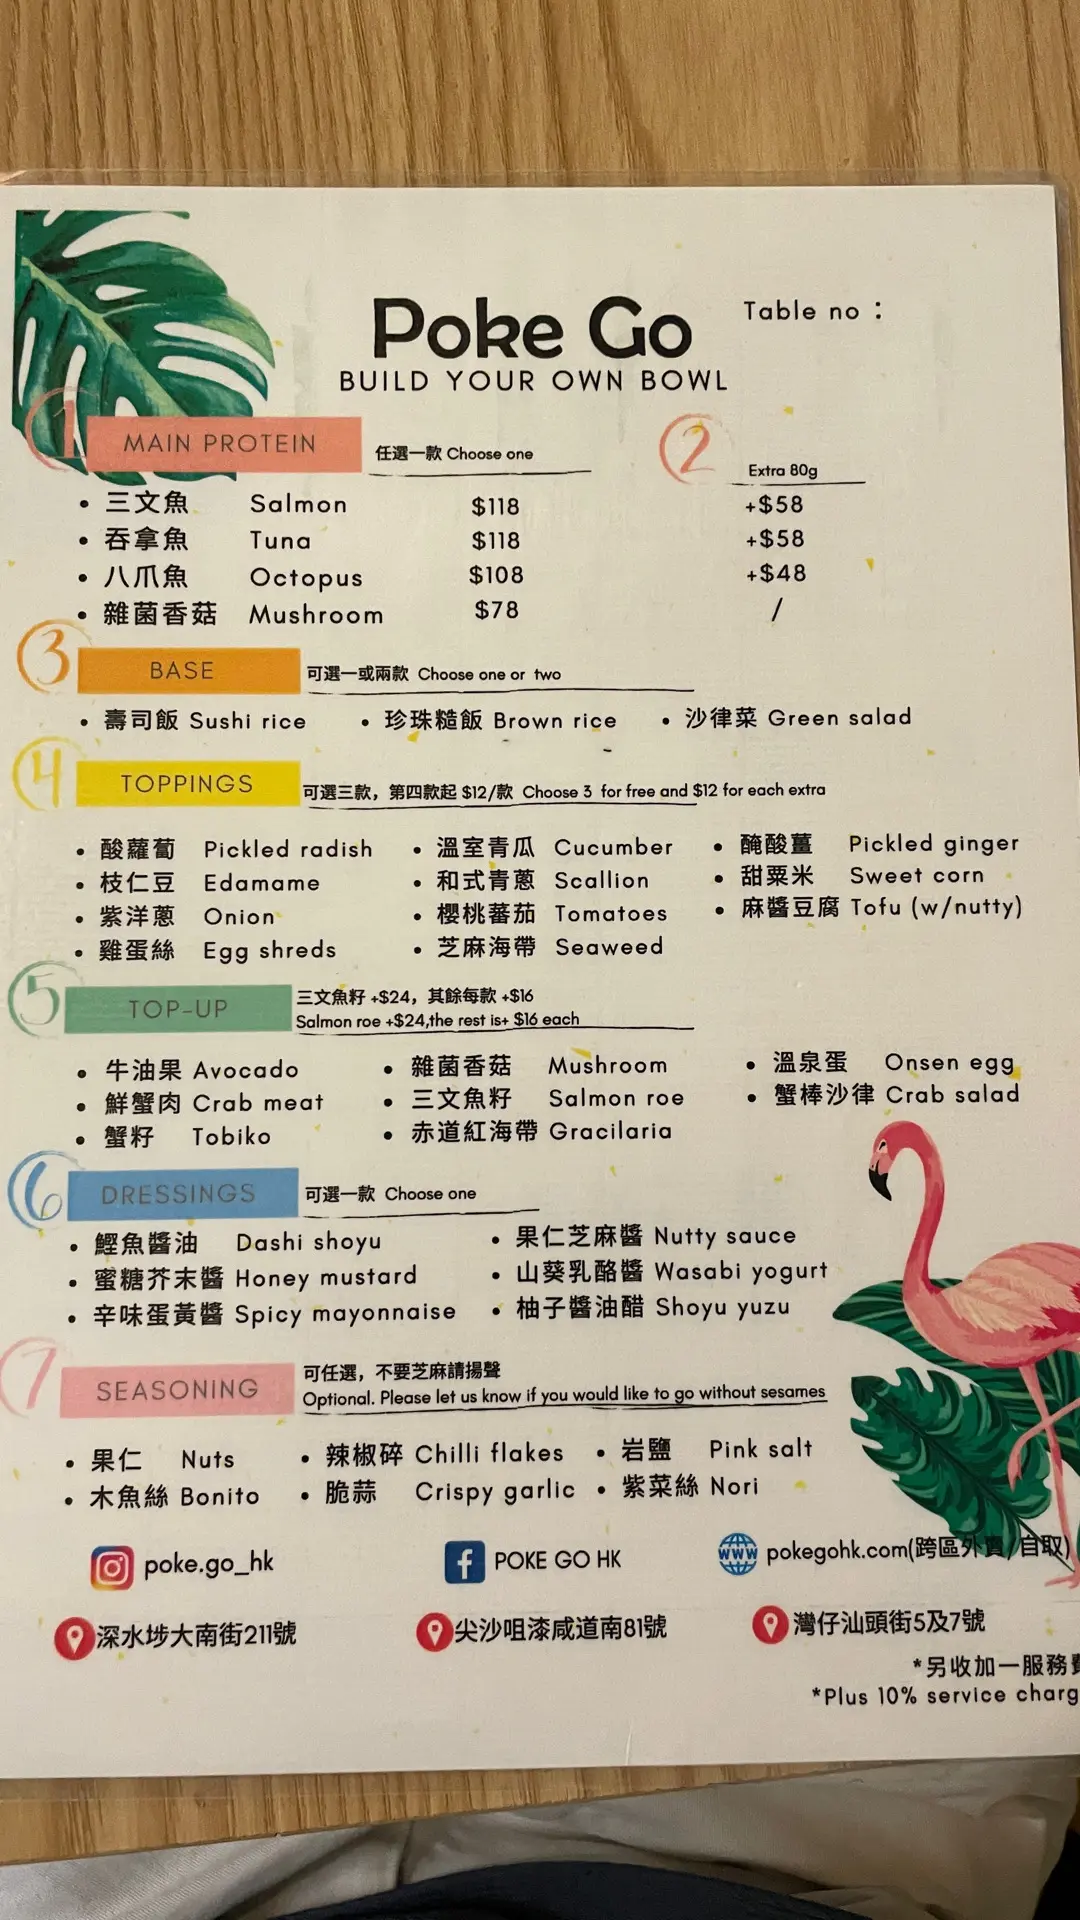 Poke Go
Table no :
BUILD YOUR OWN BOWL
1 MAIN PROTEIN 任選一款 Choose one 2 Extra 80g
• 三文魚 Salmon $118 +$58
• 吞拿魚 Tuna $118 +$58
• 八爪魚 Octopus $108 +$48
• 雜菌香菇 Mushroom $78 /
3 BASE 可選一或兩款 Choose one or two
• 壽司飯 Sushi rice • 珍珠糙飯 Brown rice • 沙律菜 Green salad
4 TOPPINGS 可選三款，第四款起 $12/款 Choose 3 for free and $12 for each extra
• 酸蘿蔔 Pickled radish • 溫室青瓜 Cucumber • 醃酸薑 Pickled ginger
• 枝仁豆 Edamame • 和式青蔥 Scallion • 甜粟米 Sweet corn
• 紫洋蔥 Onion • 櫻桃蕃茄 Tomatoes • 麻醬豆腐 Tofu (w/nutty)
• 雞蛋絲 Egg shreds • 芝麻海帶 Seaweed
5 TOP-UP 三文魚籽 +$24，其餘每款 +$16
Salmon roe +$24,the rest is+ $16 each
• 牛油果 Avocado • 雜菌香菇 Mushroom • 溫泉蛋 Onsen egg
• 鮮蟹肉 Crab meat • 三文魚籽 Salmon roe • 蟹棒沙律 Crab salad
• 蟹籽 Tobiko • 赤道紅海帶 Gracilaria
6 DRESSINGS 可選一款 Choose one
• 鰹魚醬油 Dashi shoyu • 果仁芝麻醬 Nutty sauce
• 蜜糖芥末醬 Honey mustard • 山葵乳酪醬 Wasabi yogurt
• 辛味蛋黃醬 Spicy mayonnaise • 柚子醬油醋 Shoyu yuzu
7 SEASONING 可任選，不要芝麻請揚聲
Optional. Please let us know if you would like to go without sesames
• 果仁 Nuts • 辣椒碎 Chilli flakes • 岩鹽 Pink salt
• 木魚絲 Bonito • 脆蒜 Crispy garlic • 紫菜絲 Nori
poke.go_hk f POKE GO HK WWW pokegohk.com(跨區外賣/自取)
深水埗大南街211號 尖沙咀漆咸道南81號 灣仔汕頭街5及7號
*另收加一服務費
*Plus 10% service charg